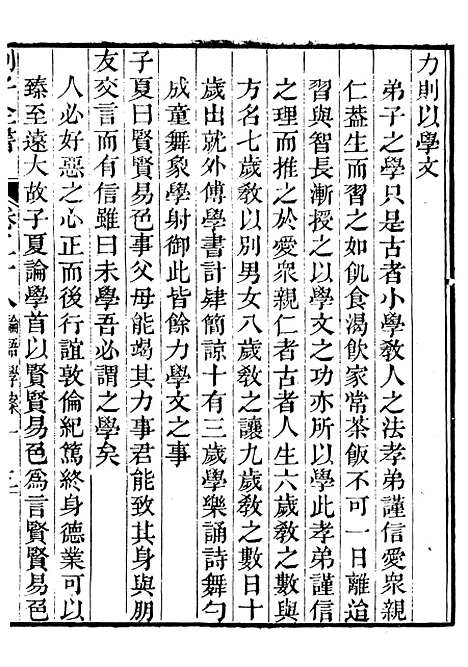 力則以學文
弟子之學只是古者小學教人之法孝弟謹信愛衆親
仁葢生而習之如飢食渴飲家常茶飯不可一日離迨
習與智長漸授之以學文之功亦所以學此孝弟謹信
之理而推之於愛衆親仁者古者人生六歲教之數與
方名七歲教以別男女八歲教之讓九歲教之數日十
歲出就外傅學書計肄簡諒十有三歲學樂誦詩舞勺
成童舞象學射御此皆餘力學文之事
子夏曰賢賢易色事父母能竭其力事君能致其身與朋
友交言而有信雖曰未學吾必謂之學矣
人必好惡之心正而後行誼敦倫紀篤終身德業可以
臻至遠大故子夏論學首以賢賢易色爲言賢賢易色
劉子全書
卷二十八
論語學案一